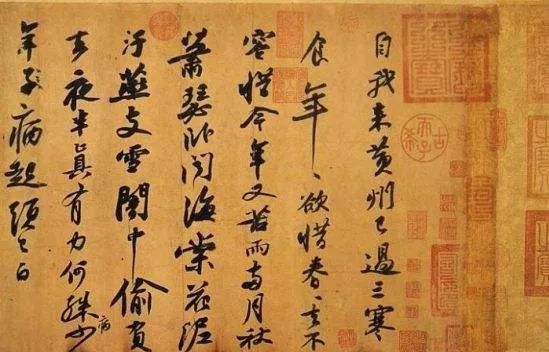 自我来黄州已過三寒
食年〻欲惜春〻去不
容惜今年又苦雨兩月秋
蕭瑟卧聞海棠花泥
汙燕支雪闇中偷負
去夜半真有力何殊少
病
年子病起須已白
古希天子